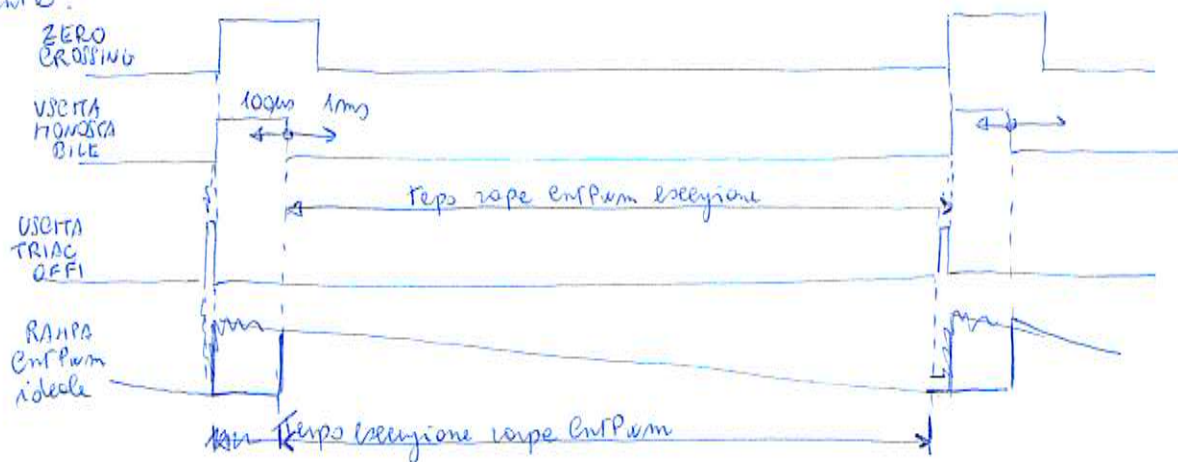 ZERO
CROSSING
USCITA
MONOSTA
BILE
100µs 1ms
Tempo rampe CntPwm esecuzione
USCITA
TRIAC
OFF1
RAMPA
CntPwm
ideale
Tempo esecuzione rampe CntPwm